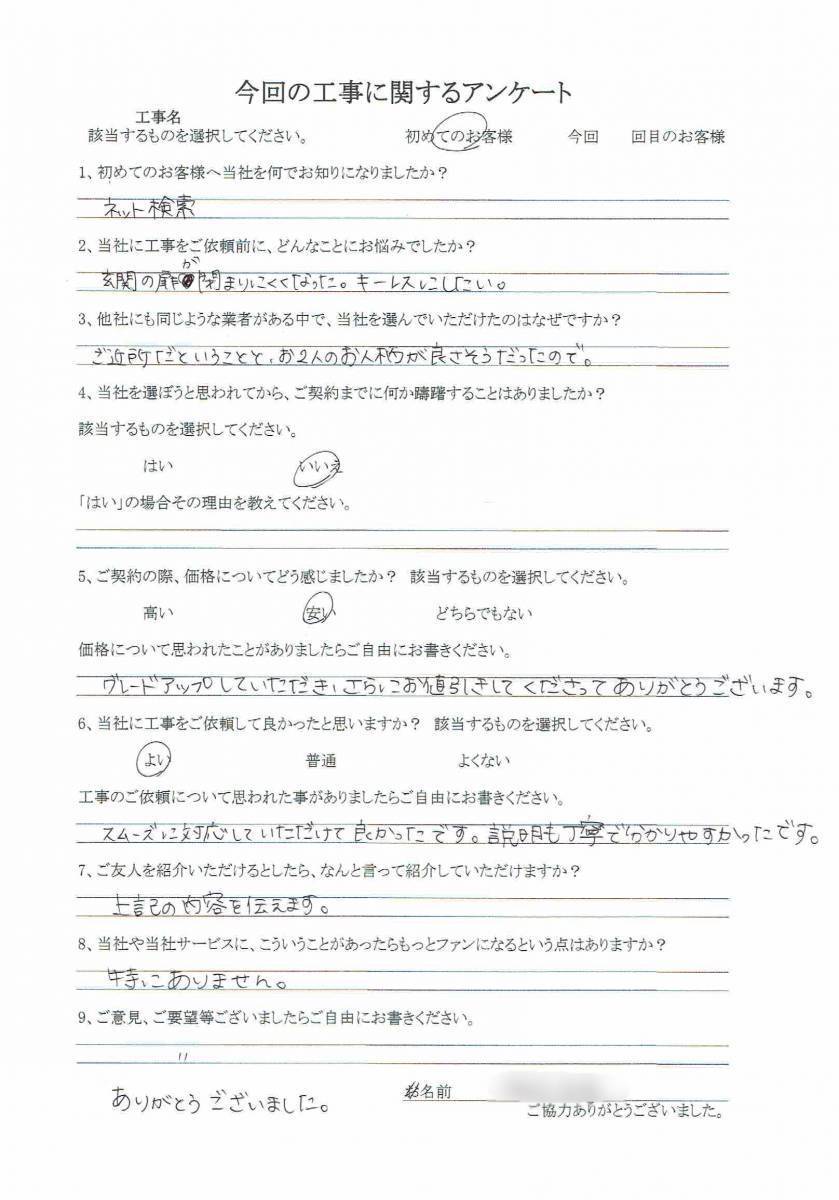 今回の工事に関するアンケート
工事名
該当するものを選択してください。 初めてのお客様 今回 回目のお客様
1、初めてのお客様へ当社を何でお知りになりましたか?
ネット検索
2、当社に工事をご依頼前に、どんなことにお悩みでしたか?
玄関の扉が閉まりにくくなった。キーレスにしたい。
3、他社にも同じような業者がある中で、当社を選んでいただけたのはなぜですか?
ご近所だということと、お2人のお人柄が良さそうだったので。
4、当社を選ぼうと思われてから、ご契約までに何か躊躇することはありましたか?
該当するものを選択してください。
はい いいえ
「はい」の場合その理由を教えてください。
5、ご契約の際、価格についてどう感じましたか? 該当するものを選択してください。
高い 安い どちらでもない
価格について思われたことがありましたらご自由にお書きください。
グレードアップしていただき、さらにお値引きしてくださってありがとうございます。
6、当社に工事をご依頼して良かったと思いますか? 該当するものを選択してください。
よい 普通 よくない
工事のご依頼について思われた事がありましたらご自由にお書きください。
スムーズに対応していただけて良かったです。説明も丁寧で分かりやすかったです。
7、ご友人を紹介いただけるとしたら、なんと言って紹介していただけますか?
上記の内容を伝えます。
8、当社や当社サービスに、こういうことがあったらもっとファンになるという点はありますか?
特にありません。
9、ご意見、ご要望等ございましたらご自由にお書きください。
〃
ありがとうございました。 お名前
ご協力ありがとうございました。